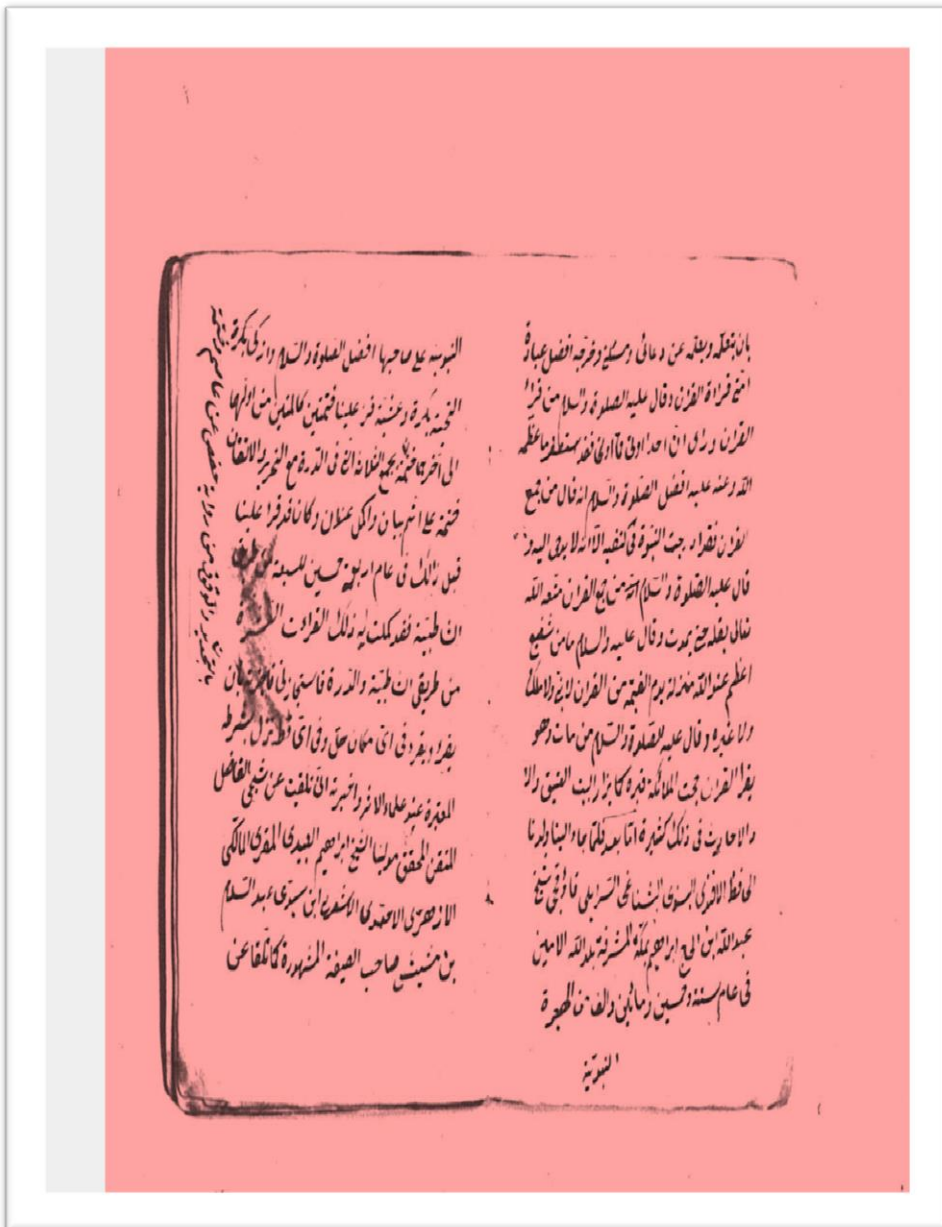 بان بتعلمه وبعلمه عن دعائى ومسئلتى
امتى قراءة القران وقال عليه الصلوة والسلام من قرأ
القران وراى ان احدا اوتى فقد ما عظمه
الله وعنه عليه افضل الصلوة والسلام انه قال من جمع
القران فقد ادرجت النبوة فى كتفيه الا انه لا يوحى اليه و
قال عليه الصلوة والسلام من جمع القران متعه الله
تعالى بعقله حتى يموت وقال عليه والسلام ما من شفيع
اعظم عند الله منزلة يوم القيمة من القران لا نبى ولا ملك
ولا غيره وقال عليه الصلوة والسلام من مات وهو
يقرأ القران حجت الملائكة قبره كما يزار البيت العتيق والا
والاحاديث فى ذلك كثيرة اما بعد فلما جاء الينا ولدنا
الحافظ شيخ
عبد الله ابن الحاج ابراهيم بمكة المشرفة بلد الله الامين
فى عام ستة وخمسين ومائتين والف من الهجرة
النبوية
النبوية على صاحبها افضل الصلوة والسلام
بكرة وعشية قرء علينا ختمتين كاملتين من اولهما
الى اخرهما ختمة بجمع الثلاثة التى فى الدرة مع التحرير والاتقان
ختمة على اتم بيان واكمل عنوان وكان قد قرا علينا
قبل ذالك فى عام اربعة خمسين للسبعة من طريق
الشاطبية فقد كملت له بذلك القراءت
من طريقى الشاطبية والدرة فاستجازنى فاجزته بان
يقرا ويقرء فى اى مكان حل وفى اى قطر نزل بشرطه
المعتبرة عند علماء الاثر واخبرته انى تلقيت عن شيخى الفاضل
المتقن المحقق مولينا الشيخ ابراهيم العبيدى المقرى المالكى
الازهرى الاحمدى ابن سيدى عبد السلام
بن مشيش صاحب المشهورة كما تلقا عن
من رواية حفص عن عاصم